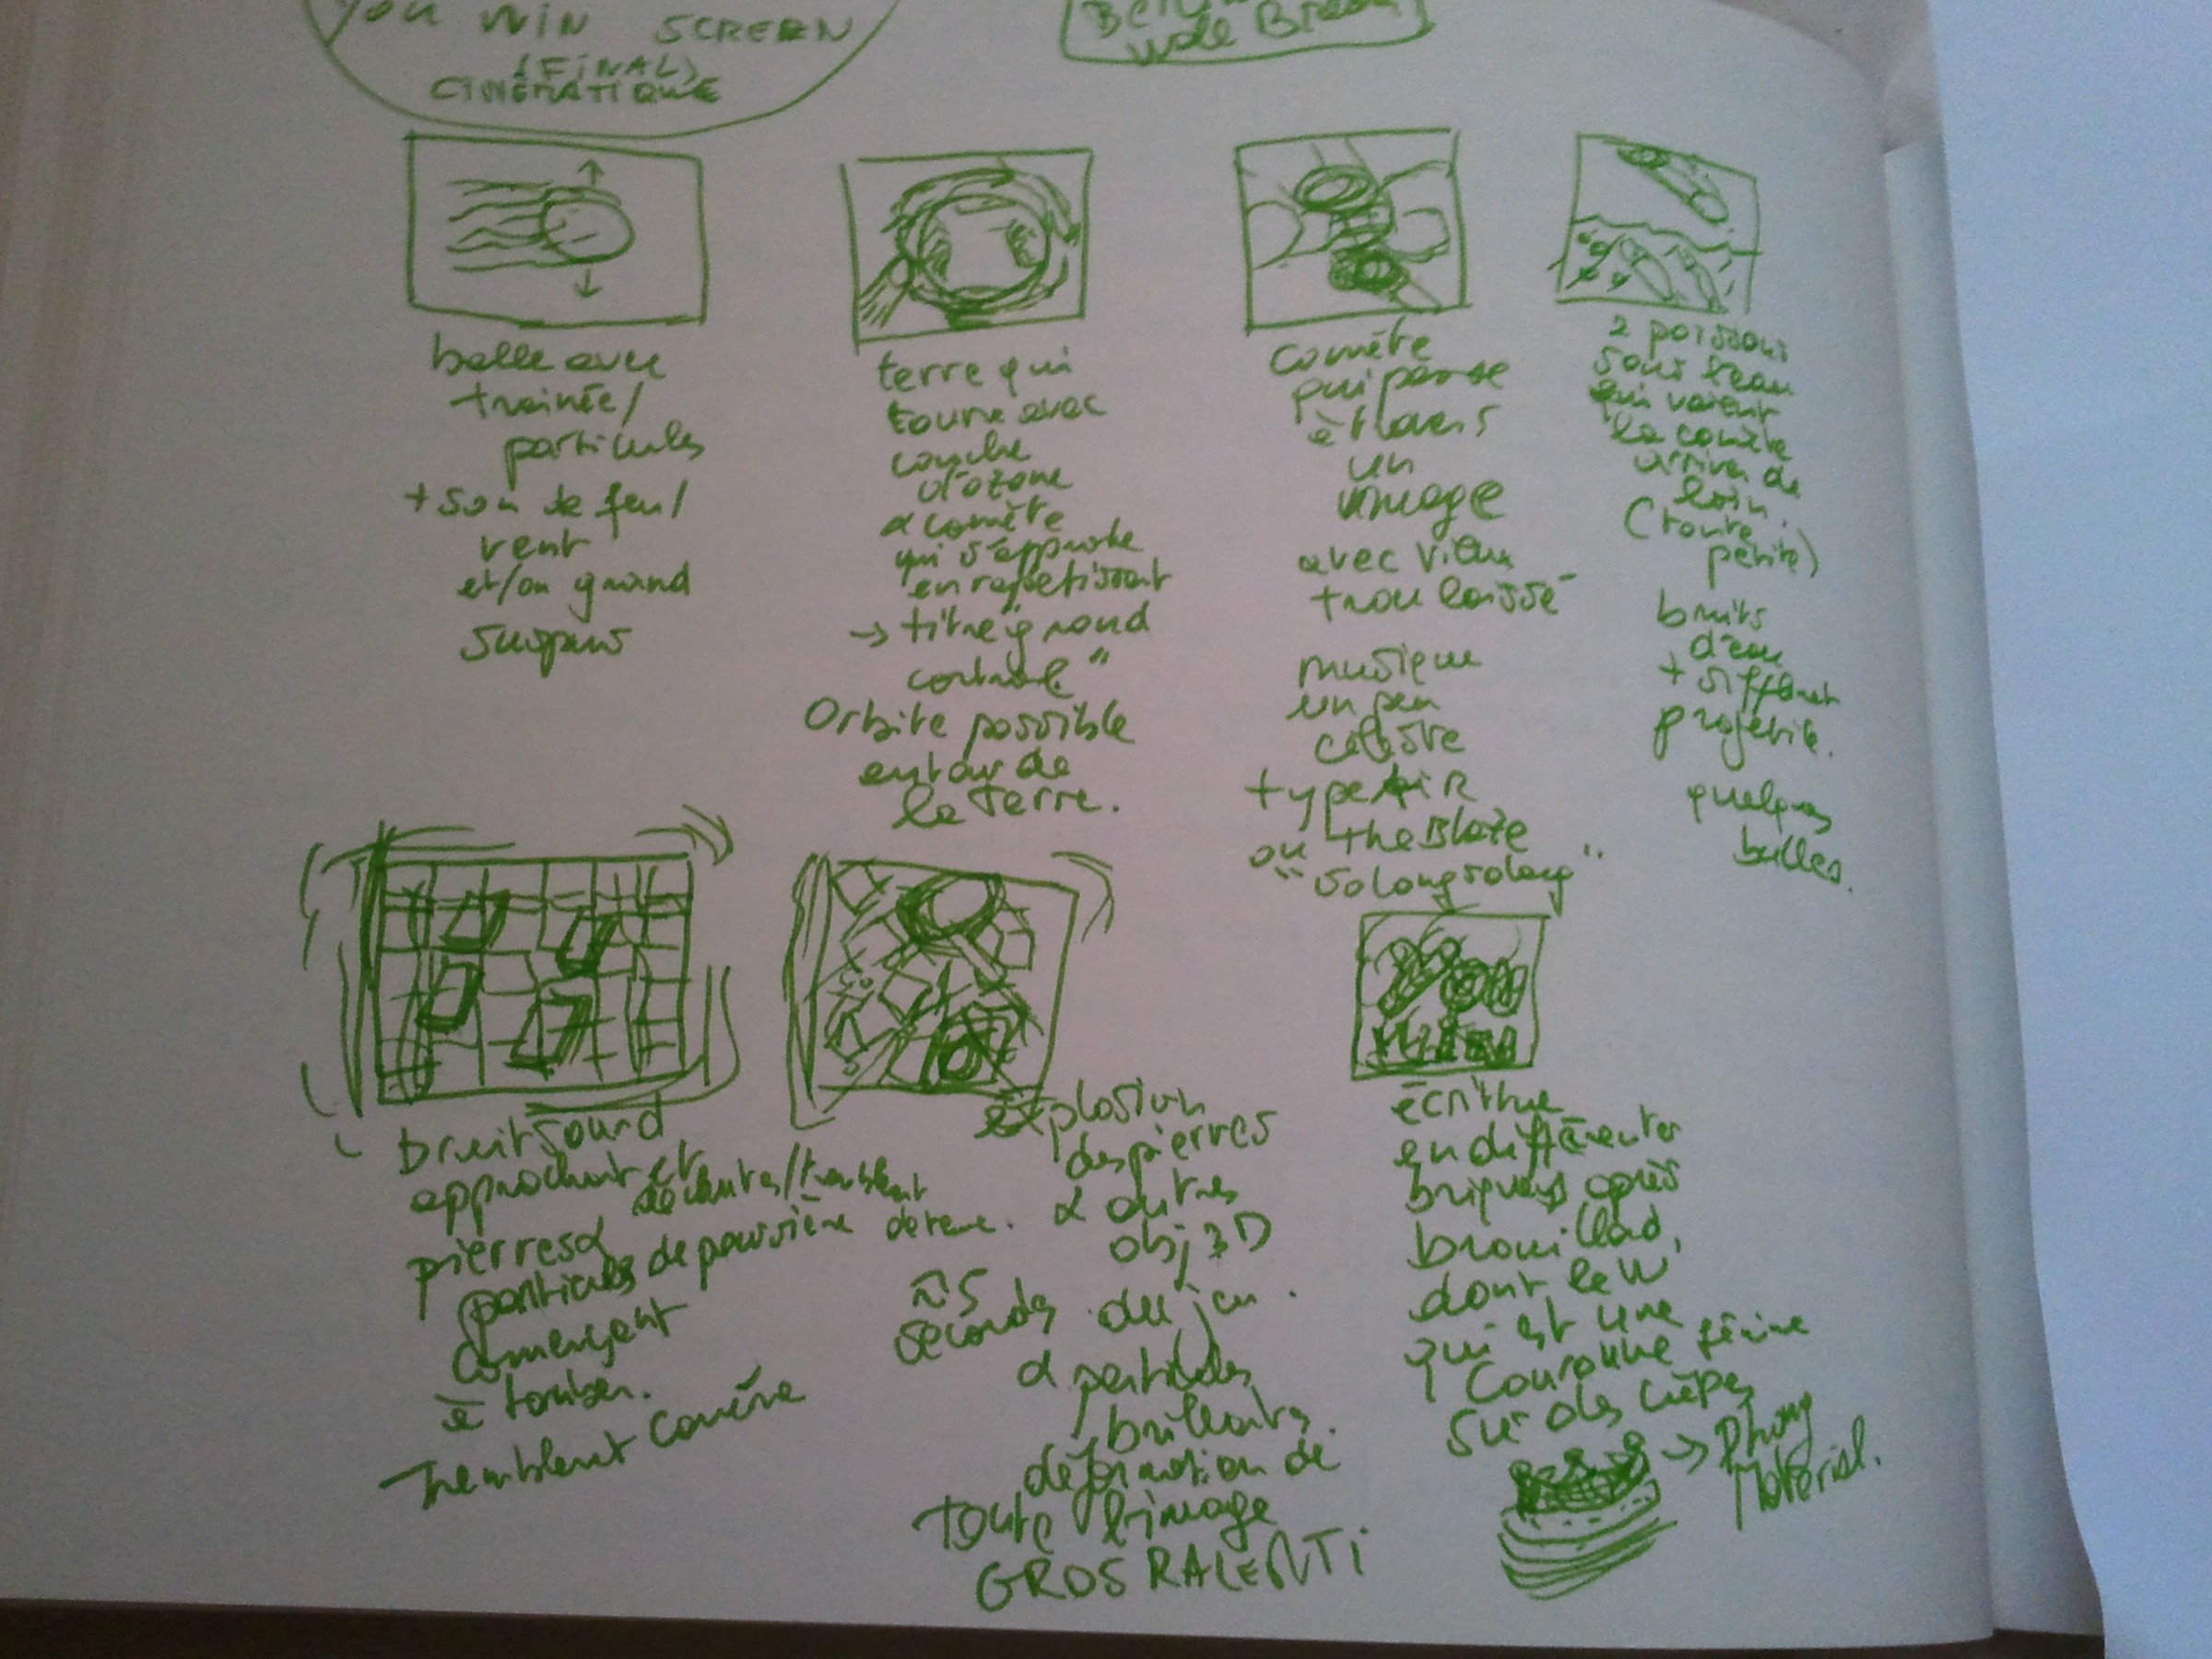 YOU WIN SCREEN
(FINAL)
CINÉMATIQUE
balle avec
trainée/
particules
+ son de feu/
vent
et/ou grand
suspens
terre qui
tourne avec
couche
d'ozone
& comète
qui s'approche
en rapetissant
→ titre grand
Orbite possible
autour de
la terre.
comète
qui passe
à travers
un
nuage
avec vieux
trou laissé
musique
un peu
céleste
type AIR
ou the Blaze
"so long so long".
2 poissons
sous l'eau
qui voient
la comète
arriver de
loin.
(toute
petite)
bruits
d'eau
+ sifflement
projectile.
quelques
bulles.
bruit sourd
approchant et
pierres &
particules de poussière de terre.
commençant
à tomber.
Tremblement caméra
explosion
des pierres
& autres
obj 3D
du jeu.
≈ 5
secondes
& particules
brillantes.
déformation de
toute l'image
GROS RALENTI
écriture
en différentes
briques après
brouillard,
dont le W
qui est une
couronne
sur des crêpes
→ Phong
Material.